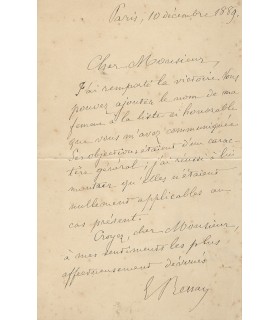 Paris, 10 décembre 1889.
Cher Monsieur,
J'ai remporté la victoire. Vous
pouvez ajouter le nom de ma
femme à la liste si honorable
que vous m'avez communiquée.
Ses objections étaient d'un carac-
tère général; j'ai réussi à lui
montrer qu'elles n'étaient
nullement applicables au
cas présent.
Croyez, cher Monsieur,
à mes sentiments les plus
affectueusement dévoués
E Renan